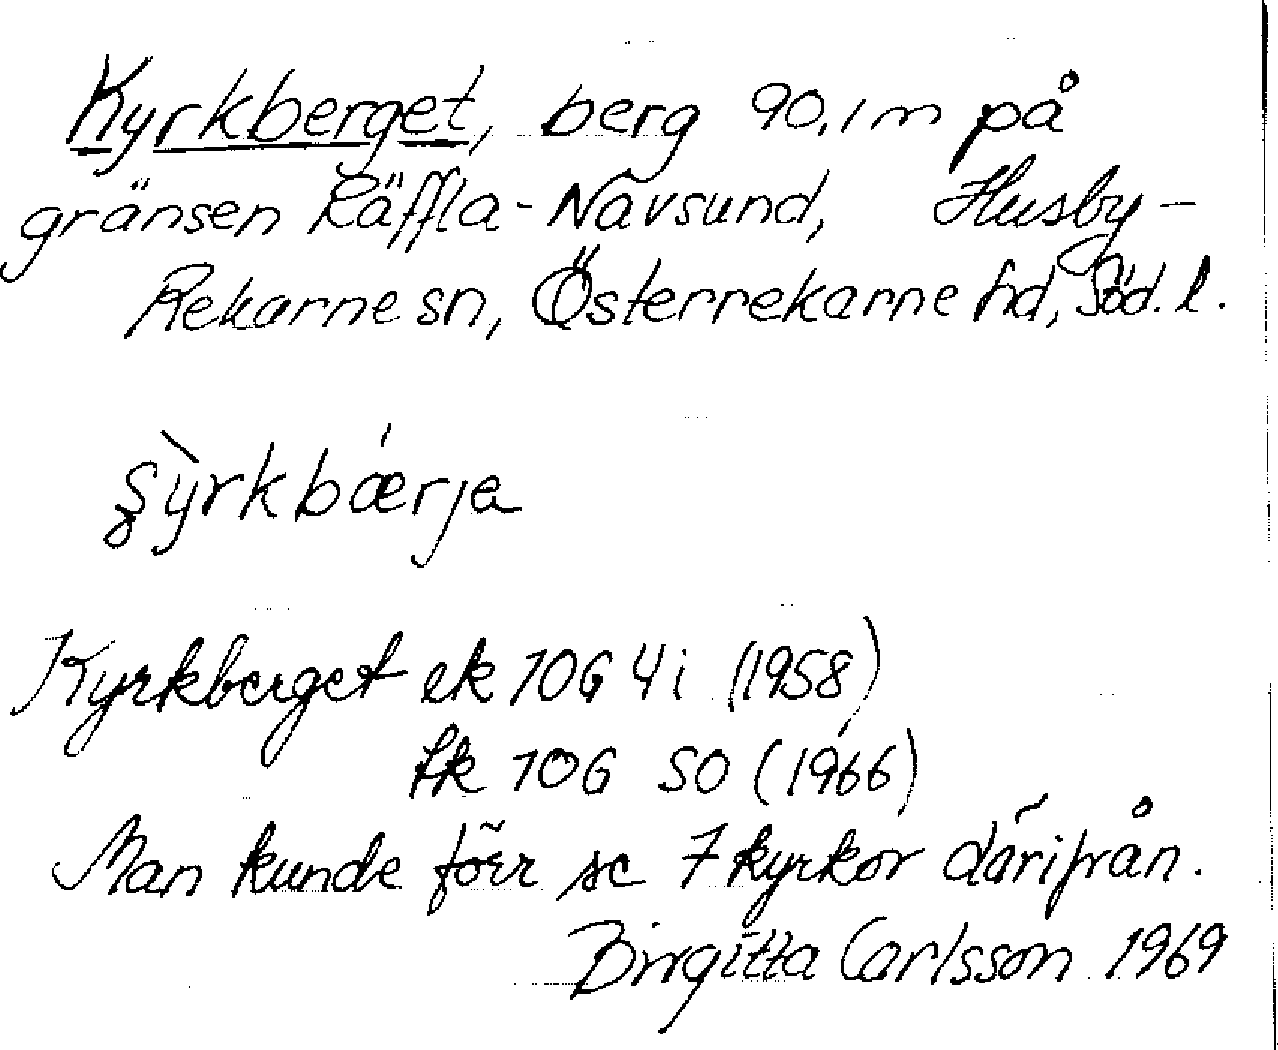 Kyrkberget, berg 90,1 m på
gränsen Räffla - Navsund, Husby-
Rekarne sn, Österrekarne hd, Söd. l.
şỳrkbǽrja
Kyrkberget ek 10G 4i (1958)
fk 10G SO (1966)
Man kunde förr se 7 kyrkor därifrån.
Birgitta Carlsson 1969